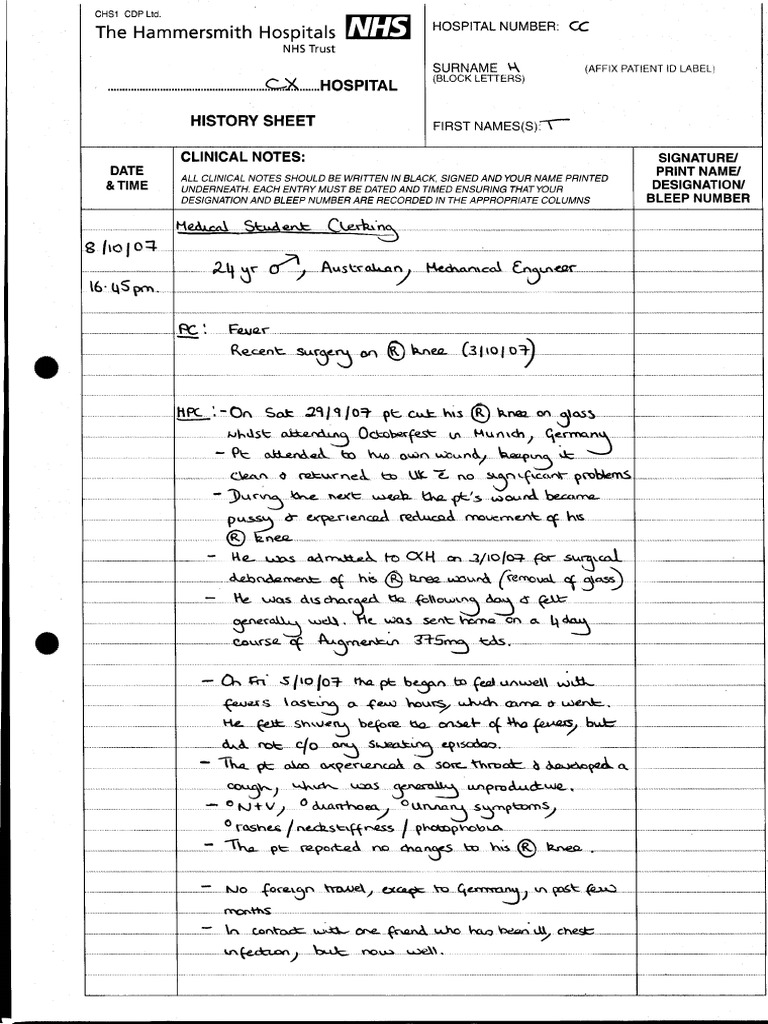 CHS1 CDP Ltd.
The Hammersmith Hospitals NHS
NHS Trust
CX HOSPITAL
HISTORY SHEET
HOSPITAL NUMBER: CC
SURNAME H (AFFIX PATIENT ID LABEL)
(BLOCK LETTERS)
FIRST NAMES(S): T
DATE
& TIME
CLINICAL NOTES:
ALL CLINICAL NOTES SHOULD BE WRITTEN IN BLACK, SIGNED AND YOUR NAME PRINTED
UNDERNEATH. EACH ENTRY MUST BE DATED AND TIMED ENSURING THAT YOUR
DESIGNATION AND BLEEP NUMBER ARE RECORDED IN THE APPROPRIATE COLUMNS
SIGNATURE/
PRINT NAME/
DESIGNATION/
BLEEP NUMBER
Medical Student Clerking
8/10/07
24 yr ♂, Australian, Mechanical Engineer
16.45pm.
PC: Fever
Recent surgery on Ⓡ knee (3/10/07)
HPC:- On Sat 29/9/07 pt cut his Ⓡ knee on glass
whilst attending Octoberfest in Munich, Germany
- Pt attended to his own wound, keeping it
clean & returned to UK c̄ no significant problems
- During the next week the pt's wound became
pussy & experienced reduced movement of his
Ⓡ knee
- He was admitted to CXH on 3/10/07 for surgical
debridement of his Ⓡ knee wound (removal of glass)
- He was discharged the following day & felt
generally well. He was sent home on a 4 day
course of Augmentin 375mg tds.
- On Fri 5/10/07 the pt began to feel unwell with
fevers lasting a few hours, which came & went.
He felt shivery before the onset of the fevers, but
did not c/o any sweating episodes.
- The pt also experienced a sore throat & developed a
cough, which was generally unproductive.
- °N+V, °diarrhoea, °urinary symptoms,
°rashes/neckstiffness/photophobia
- The pt reported no changes to his Ⓡ knee.
- No foreign travel, except to Germany, in past few
months
- In contact with one friend who has been ill, chest
infection, but now well.